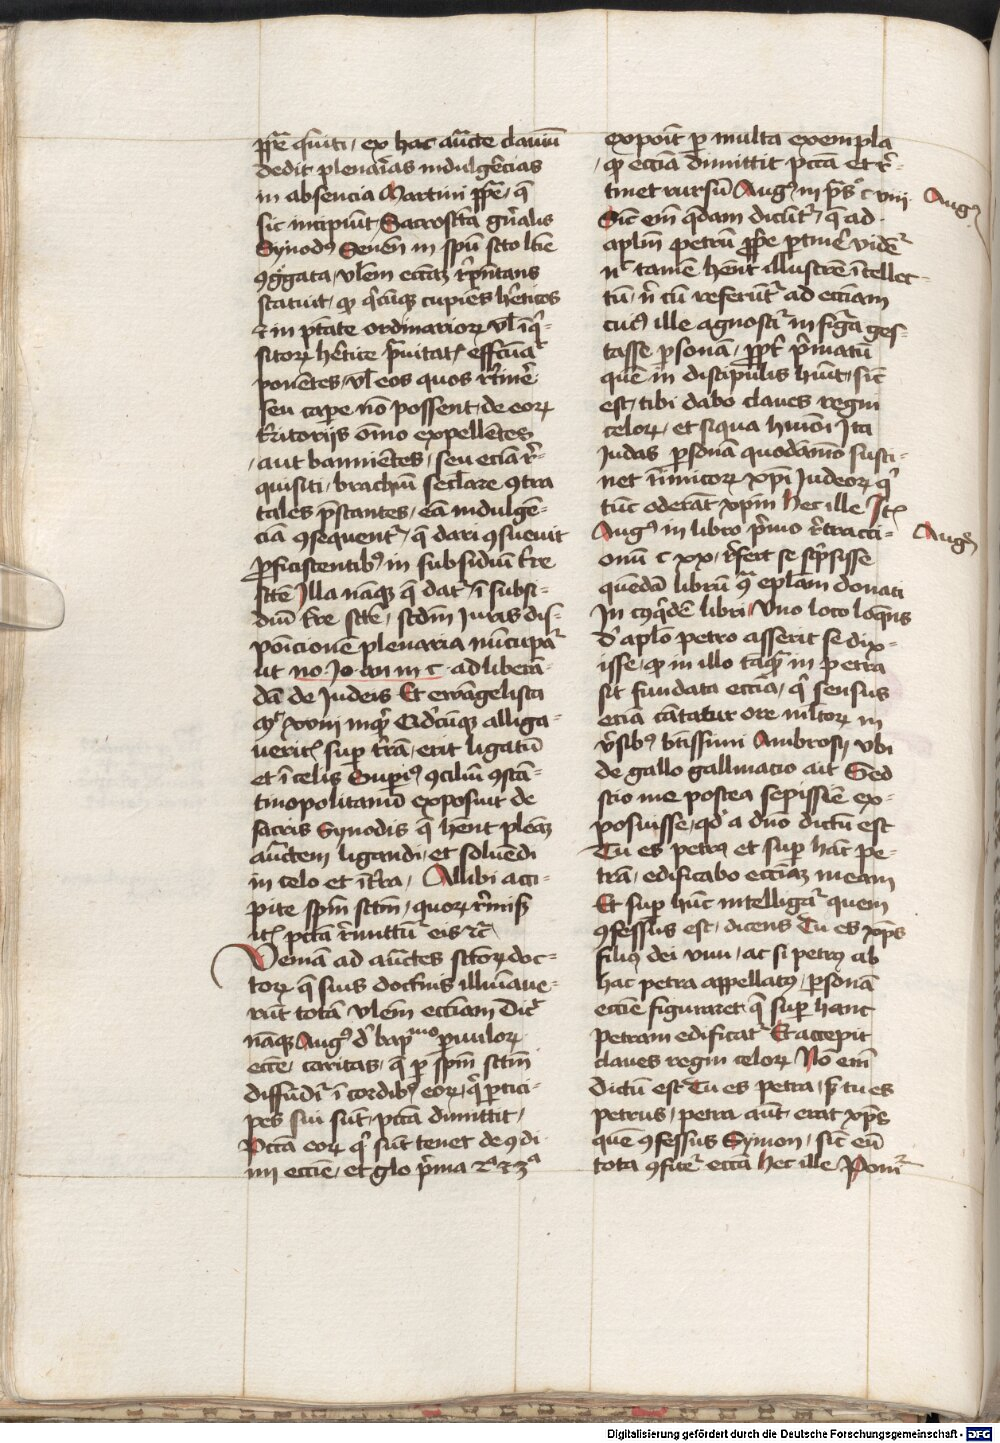 ppē q̄uiti, ex hac auc̄te clauiū
dedit plenarias indulgēcias
in absencia Martini ppē, q̄
sic incipiūt, Sacroscta gn̄alis
Synodꝰ Senen̄ in spū scto ltīe
ꝯgg̃ata, vlem ecciaꝫ rp̄ñtans
statuit, ꝙ q̄cūqꝫ cupiēs hēticos
⁊ in ptāte ordinarioꝝ vl̄ īq̄-
sitoꝝ hētice p̄uitatꝭ effcūa
ponētes, vl̄ eos quos rtinē
seu cape nō possent, de eoꝝ
tritorijs om̄o expellētes
, aut bannientes, seu eciā r̄-
quisiti, brachiū seclare ꝯtra
tales p̄stantes, eā indulgē-
ciā ꝯsequent᷑, q̄ dari ꝯsueuit
ꝓficiscentibꝰ in subsidiū tr̄e
scte Illa nāqꝫ q̄ dat᷑ ī subsi-
diū tr̄e scte, scdm Juris dis-
poīcionē plenaria nūcupat᷑
ut no Jo an in c ad liberā-
dā de Judeis Et ewāngelista
Mᵗ xviii inqt Qd̄cūqꝫ alliga-
ueritꝭ sup t̄rā, erit ligatū
et ī celis Supiꝰ ꝯciliū ꝯstā-
tinopolitanū exposuit de
sacris Synodis q̄ hēnt plenā
auc̄tem ligandi, et soluēdi
in celo et ī tr̄a, Alibi acci-
pite spm sctm, quoꝝ r̄misꝭ
itꝭ pctā r̄mittūt᷑ eis ⁊c̄
Veniā ad auc̄tes sctoꝝ doc-
toꝝ q̄ suis doctnīs illuīaue-
rūt totā vlem ecciam Dic̄
nāqꝫ Augꝰ d̄ bapᵐᵒ puuloꝝ
ecce, caritas, q̄ p spm sctm
diffūdi᷑ ī cordibꝰ eoꝝ, q̄ ptici-
pes sui sūt, pctā dimittit,
Pctā eoꝝ q̄ sūt tenet de ꝯdi
ni eccie, et glo p̄ma 2ᵃ ⁊ 3ᵃ
expoīt p multa exempla
, ꝙ eccia dimittit pctā et r̄-
tinet rursū Augꝰ in ps̄ c viii
Sic em̄ q̄dam dicūt᷑, q̄ ad
aplm petrū ppe ptinē vidēt᷑
nᶜ tamē hēnt illustrē ītellec-
tū, n̄ cū referūt᷑ ad ecciam
cuiꝰ ille agnosci᷑ in figā ges-
tasse psonā, ppt p̄matū
quē in discipulis huīt, sic̄
est, tibi dabo claues regni
celoꝝ, et siqua hmōi Ita
Judas psonā quodāmō susti-
net īnimicoꝝ xpi Judeoꝝ q̄
tūc oderāt xpm hec ille Itꝭ
Augꝰ in libro p̄mo r̄tracci-
onū c xx, r̄fert se sc̄psisse
quēdā librū ꝯ eplam donati
In cꝰ q̄dē libri Vno loco loqns
d̄ aplo petro asserit se dix-
isse, ꝙ in illo tāqꝫ in petra
sit fundata eccia, q̄ sensus
eciā cātatur ore mltoꝝ in
v̄sibꝰ btissimi Ambrosij vbi
de gallo gallinacio ait Sed
scio me postea sepissiē ex-
posuisse, qd̄ a dno dictū est
Tu es petrꝰ et sup hāc pe-
trā, edificabo ecciaꝫ meam
Et sup hūc intelligat᷑ quem
ꝯfessus est, dicens Tu es xp̄s
filiꝰ dei viui, ac si petrꝰ ab
hac petra appellatꝰ, psonā
eccie figuraret q̄ sup hanc
petram edificat᷑ Et accepit
claues regni celoꝝ Nō em̄
dictū est Tu es petra, s̄ tu es
petrus, petra aūt erat xp̄s
quē ꝯfessus Symon, sic̄ eū
tota ꝯfitet᷑ eccia hec ille Poni᷑
Augꝰ
Augꝰ
Digitalisierung gefördert durch die Deutsche Forschungsgemeinschaft - DFG